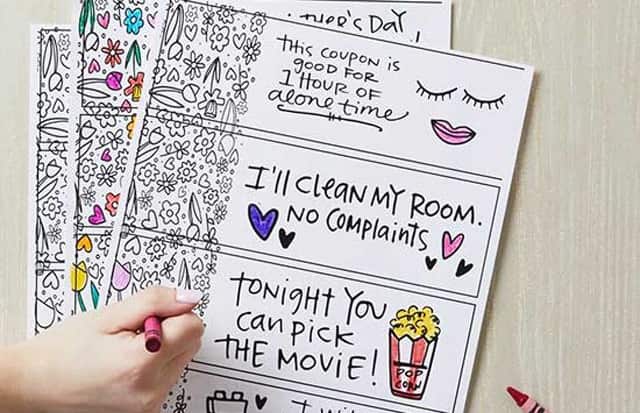 Day!
THIS COUPON IS
GOOD FOR
1 HOUR OF
alone time
I'll clean MY ROOM.
NO COMPLAINTS
TONIGHT YOU
can PICK
THE MOVIE!
POP
CORN
I